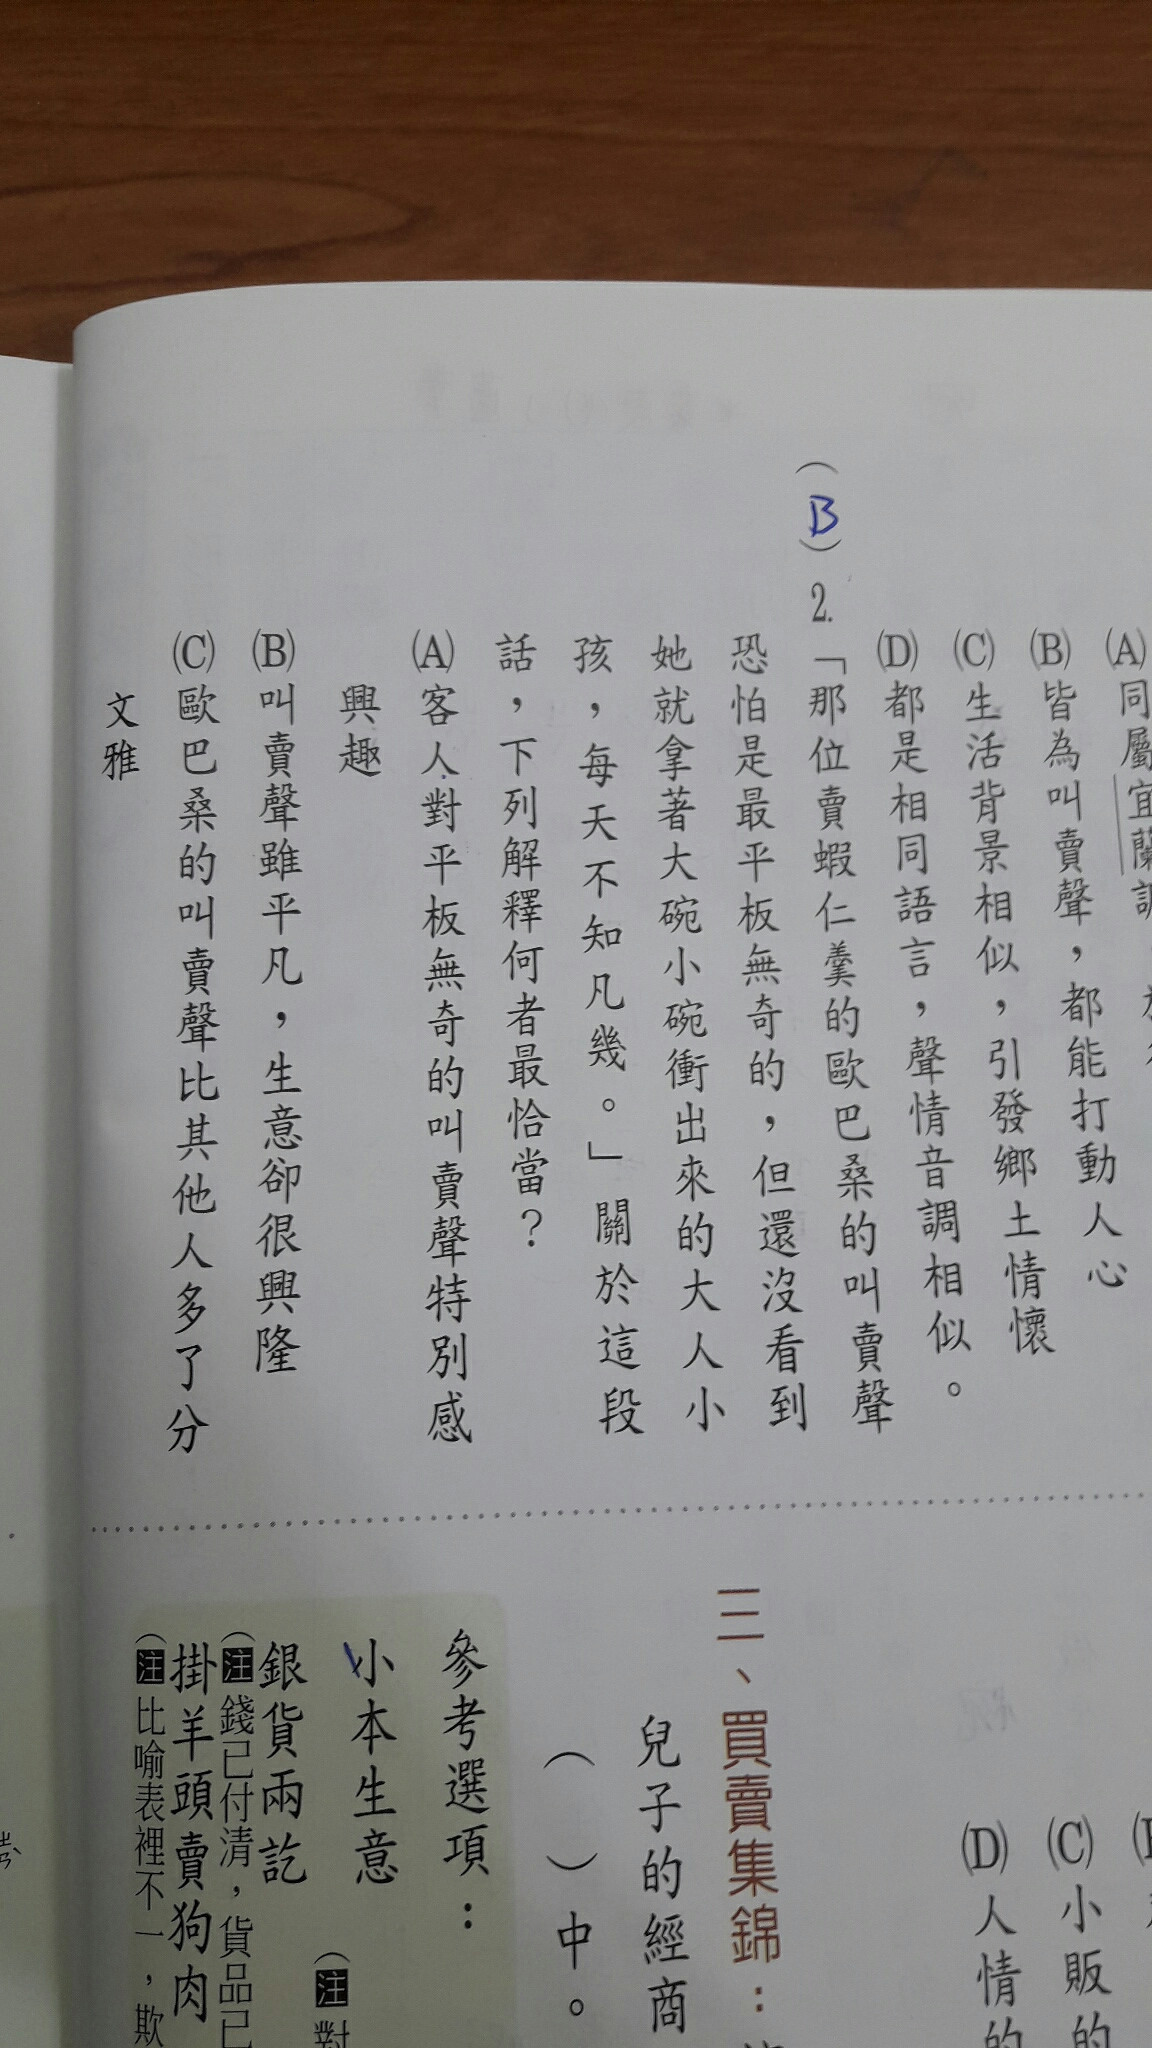 (A)同屬宜蘭調
(B)皆為叫賣聲，都能打動人心
(C)生活背景相似，引發鄉土情懷
(D)都是相同語言，聲情音調相似。
（B）2.「那位賣蝦仁羹的歐巴桑的叫賣聲
恐怕是最平板無奇的，但還沒看到
她就拿著大碗小碗衝出來的大人小
孩，每天不知凡幾。」關於這段
話，下列解釋何者最恰當？
(A)客人對平板無奇的叫賣聲特別感
興趣
(B)叫賣聲雖平凡，生意卻很興隆
(C)歐巴桑的叫賣聲比其他人多了分
文雅
(C)小販的
(D)人情的
三、買賣集錦：
兒子的經商
（　）中。
參考選項：
小本生意
（注對
銀貨兩訖
（注錢已付清，貨品已
掛羊頭賣狗肉
（注比喻表裡不一，欺